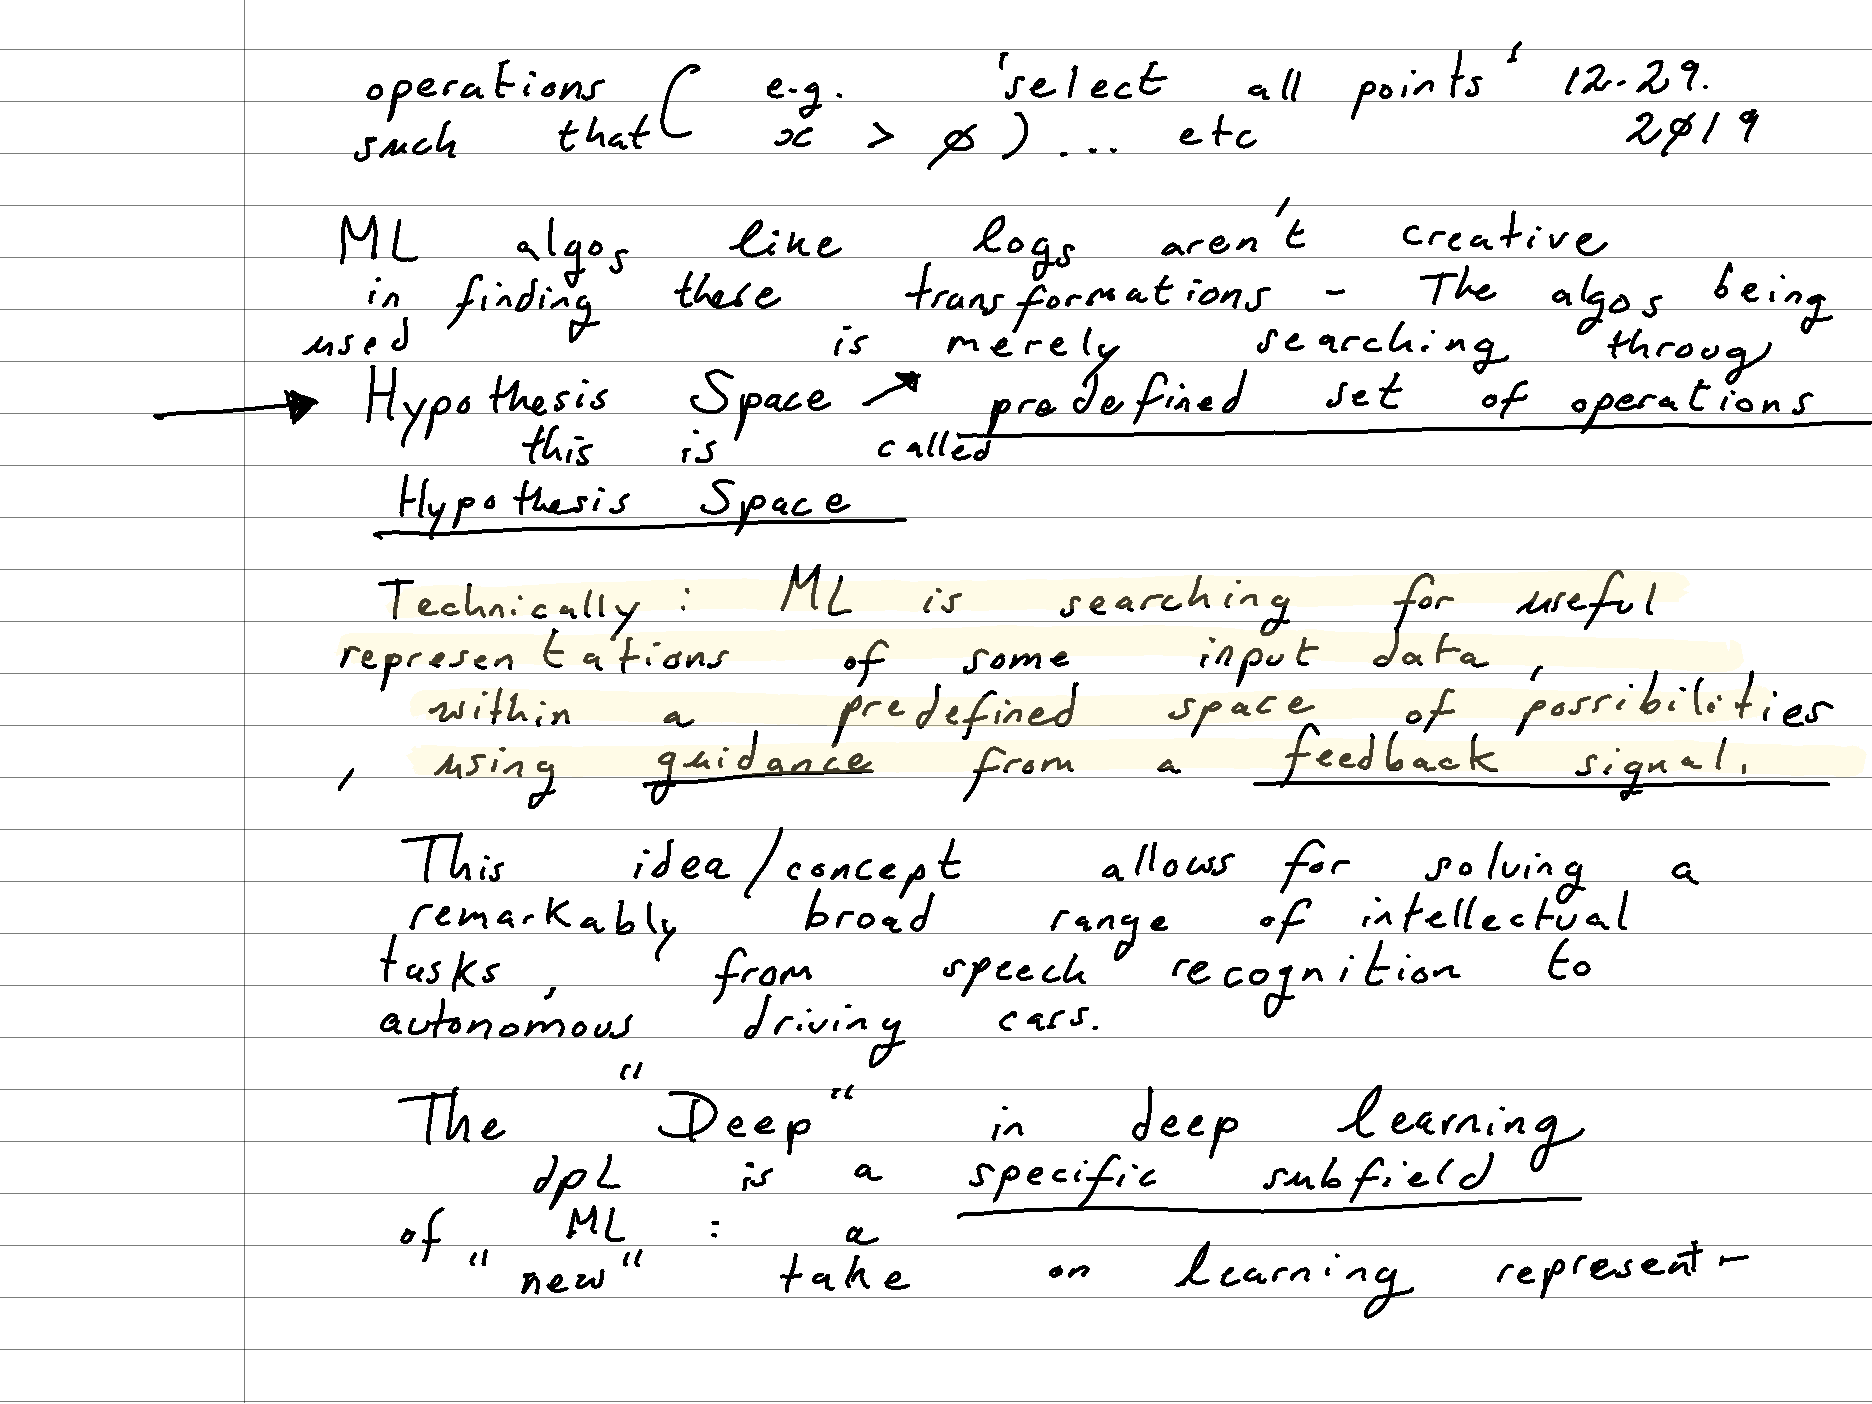 operations ( e.g. 'select all points' 12.29.
such that x > ∅ ) ... etc 2∅19
ML algos like logs aren't creative
in finding these transformations - The algos being
used is merely searching throug
Hypothesis Space ↗ predefined set of operations
this is called
Hypothesis Space
Technically : ML is searching for useful
representations of some input data ,
within a predefined space of possibilities
, using guidance from a feedback signal.
This idea/concept allows for solving a
remarkably broad range of intellectual
tasks , from speech recognition to
autonomous driving cars.
The "Deep" in deep learning
dpL is a specific subfield
of ML : a
"new" take on learning represent-